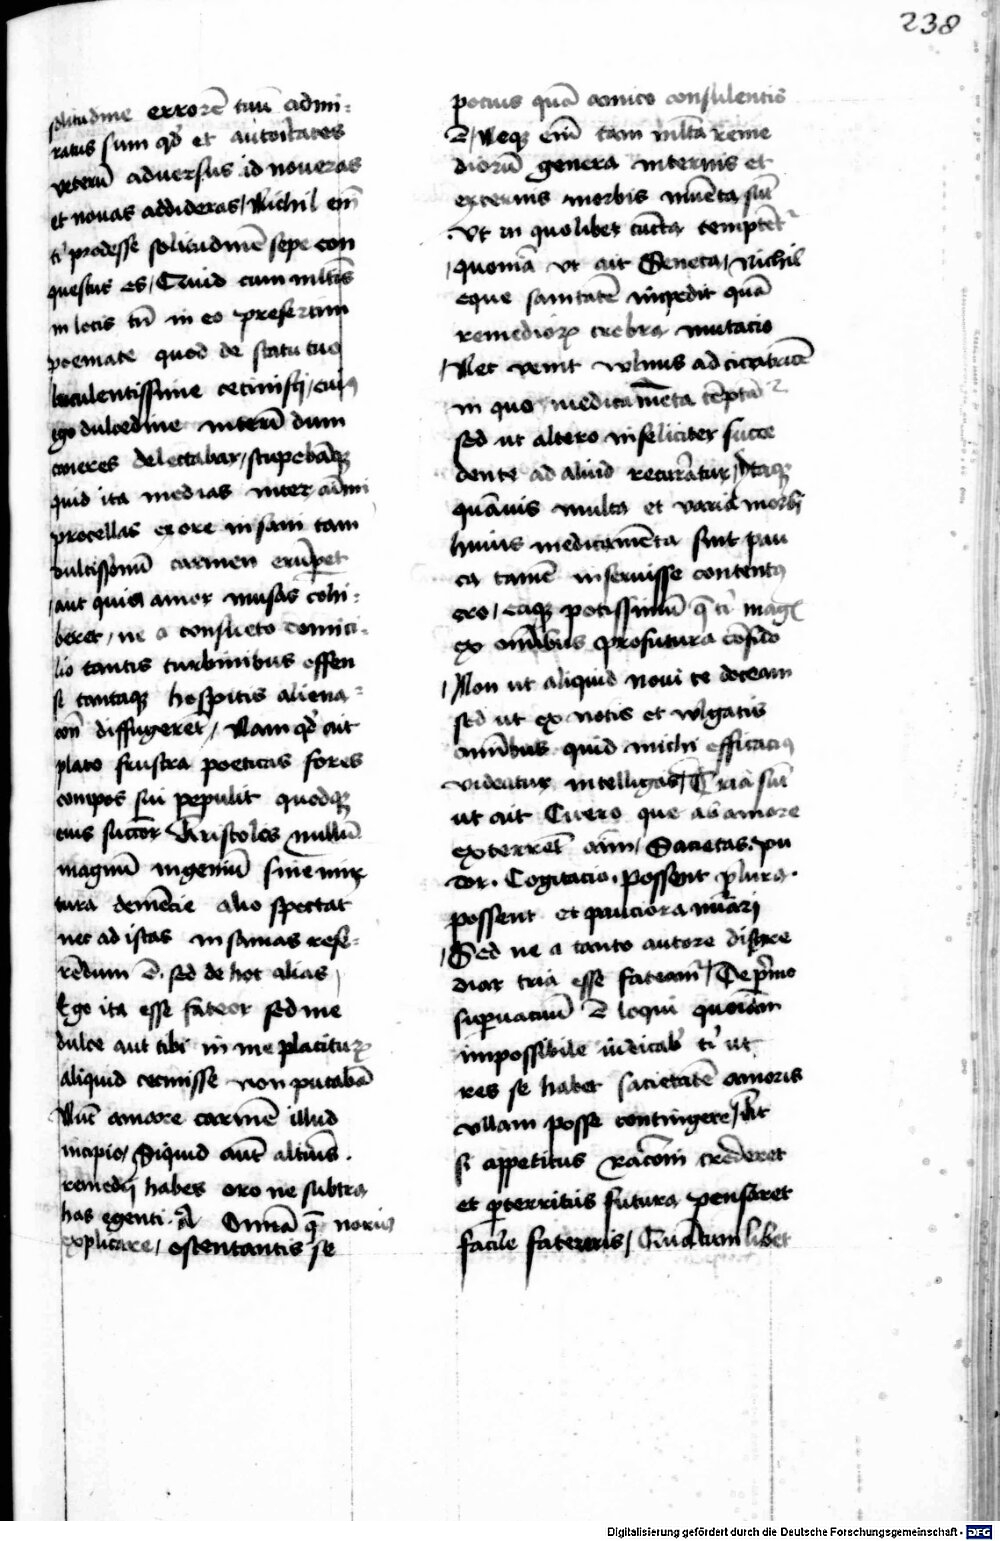 238
solitudine errorē tuū admi-
ratus sum qd et auctoritates
veterū adversus id noveras
et novas addideras / Nichil em̄
ti prodesse solitudinē sepe con
questus es / Quid cum multis
in locis tū in eo presertim
poemate quod de statu tuo
luculentissime cecinisti / cuiꝰ
ego dulcedine interī dum
coneres delectabar / stupebāqꝫ
quid ita medias inter aīmi
procellas ex ore insani tam
dulcissonū carmen erūperet
/ aut quis amor musas cohi-
beret / ne a consueto domici-
lio tantis turbinibus offen
si tantaqꝫ hospitis aliena-
cōn̄ diffugerēt / Nam qd ait
plato frustra poeticas fores
compos sui pepulit quodqꝫ
eius succōr Aristotiles nullū
magnū ingeniū sine mix
tura demēcie alio spectat
nec ad istas insanias refe-
rēdum ē. sed de hoc alias /
Ego ita esse fateor sed me
dulce aut tibi in me placiturꝫ
aliquid cecinisse non putabā
Nūc amare carmē illud
incipio / Siquid aūt altiūs .
remedij habes oro ne subtra
has egenti . A Omīa q̄ noriꝰ
explicare / ostentantis se
potius quā amico consulentis
ē / Neqꝫ em̄ tam mlta reme
diorū genera internis et
externis morbis invēta sūt
Ut in quolibet cūcta temptētꝰ
/ quoniā ut ait Seneca / Nichil
eque sanitatē impedit quā
remedioꝝ crebra mutacio
/ Nec venit vlnus ad cicatricē
in quo medicamēta tēptātꝰ
sed ut altero infeliciter succe
dente ad aliud recurātur / Itaqꝫ
quāvis multa et varia morbi
huius medicamēta sint pau
ca tamē inseruisse contentꝰ
ero / eaqꝫ potissimū q̄ ti magꝭ
ex omībus profutura cōfido
/ Non ut aliquid novi te doceam
sed ut ex notis et wlgatis
omībus quid michi efficaciꝰ
videatur intelligas / Tria sūt
ut ait Cicero que ab amore
exterrēt aīm / Sacietas . pu
dor . Cogitacio . possent plura .
possent et pauciora nūari
/ Sed ne a tanto autore discre
diar tria esse fateamꝰ / De prīmo
supervacuū ē loqui quoniam
impossibile iudicab ti ut
res se habet sacietatē amoris
ullam posse contingere / At
si appetitus racōni crederet
et preterritus futura pensaret
facile fatereris / Quātum libet
Digitalisierung gefördert durch die Deutsche Forschungsgemeinschaft - DFG